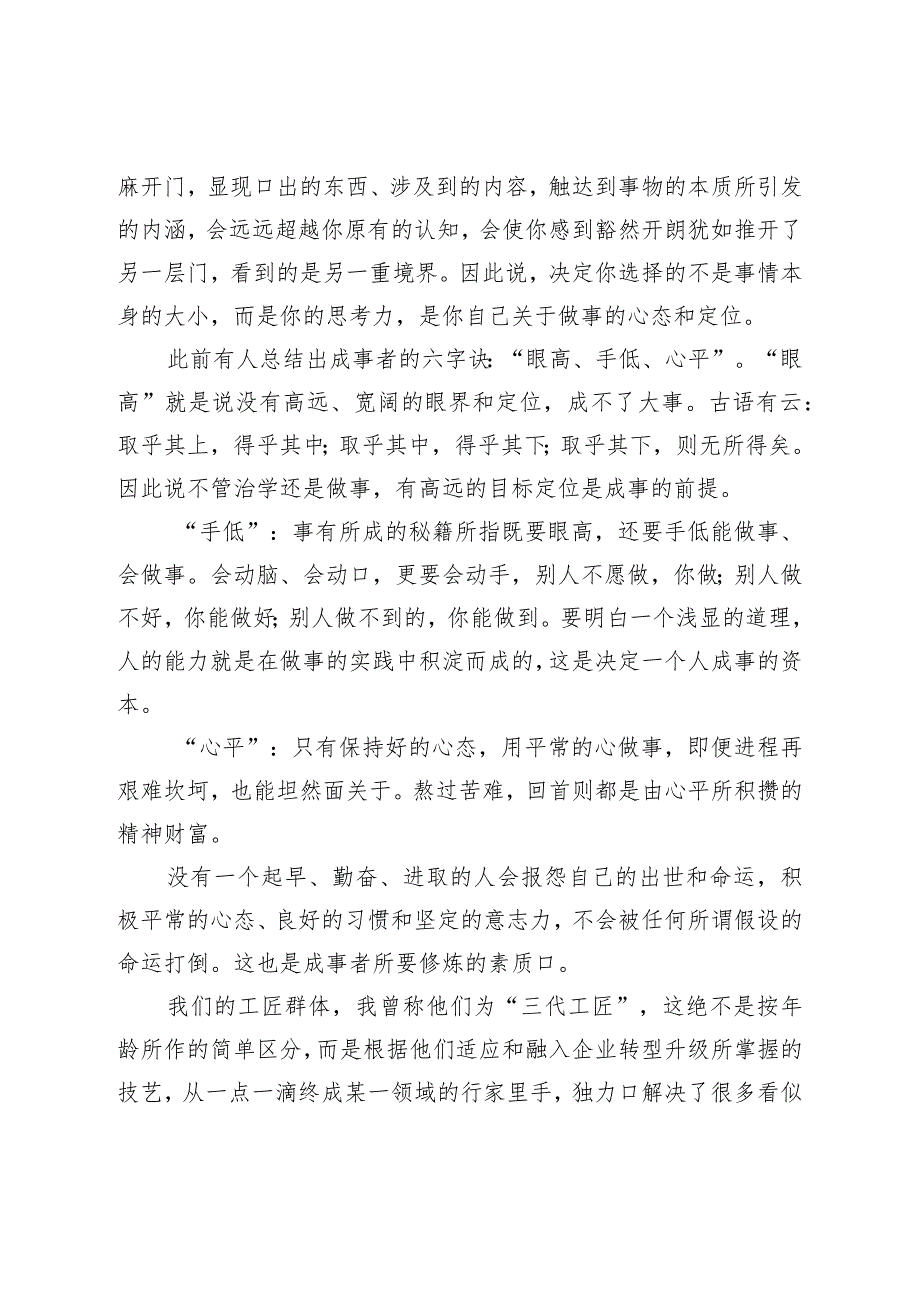 麻开门，显现口出的东西、涉及到的内容，触达到事物的本质所引发
的内涵，会远远超越你原有的认知，会使你感到豁然开朗犹如推开了
另一层门，看到的是另一重境界。因此说，决定你选择的不是事情本
身的大小，而是你的思考力，是你自己关于做事的心态和定位。
此前有人总结出成事者的六字诀：“眼高、手低、心平”。“眼
高”就是说没有高远、宽阔的眼界和定位，成不了大事。古语有云：
取乎其上，得乎其中；取乎其中，得乎其下；取乎其下，则无所得矣。
因此说不管治学还是做事，有高远的目标定位是成事的前提。
“手低”：事有所成的秘籍所指既要眼高，还要手低能做事、
会做事。会动脑、会动口，更要会动手，别人不愿做，你做；别人做
不好，你能做好；别人做不到的，你能做到。要明白一个浅显的道理，
人的能力就是在做事的实践中积淀而成的，这是决定一个人成事的资
本。
“心平”：只有保持好的心态，用平常的心做事，即便进程再
艰难坎坷，也能坦然面关于。熬过苦难，回首则都是由心平所积攒的
精神财富。
没有一个起早、勤奋、进取的人会报怨自己的出世和命运，积
极平常的心态、良好的习惯和坚定的意志力，不会被任何所谓假设的
命运打倒。这也是成事者所要修炼的素质口。
我们的工匠群体，我曾称他们为“三代工匠”，这绝不是按年
龄所作的简单区分，而是根据他们适应和融入企业转型升级所掌握的
技艺，从一点一滴终成某一领域的行家里手，独力口解决了很多看似